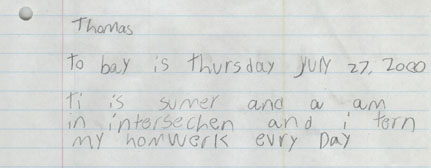 Thomas
to bay is thursday JULY 27, 2000
ti is sumer and a am
in intersechen and i tern
my homwerk evry Day